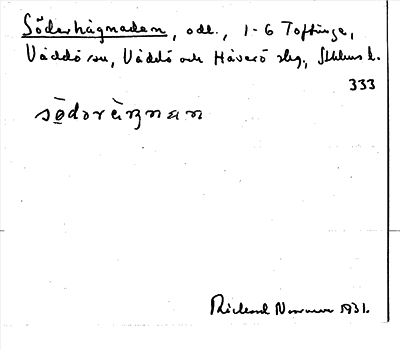 Söderhägnaden, odl., 1-6 Toftinge,
Väddö sn, Väddö och Häverö skg., Sthlms l.
333
södər
Rickard 1931.